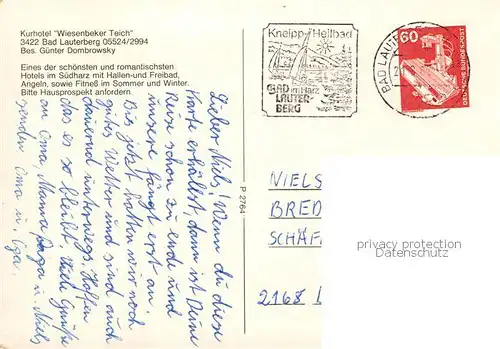 Kurhotel "Wiesenbeker Teich"
3422 Bad Lauterberg 05524/2994
Bes. Günter Dombrowsky
Eines der schönsten und romantischsten
Hotels im Südharz mit Hallen-und Freibad,
Angeln, sowie Fitneß im Sommer und Winter.
Bitte Hausprospekt anfordern.
Lieber Niels! Wenn du diese
Karte erhällst, dann ist Deine
Reise schon zu ende und
unsere fängt erst an.
Bis jetzt hatten wir noch
gutes Wetter und sind auch
dauernd unterwegs. Hoffen
das es so bleibt. Viele Grüße
an Oma, Mama, Papa u. Niels
senden Oma u. Opa.
P 2764
Kneipp-Heilbad
BAD im Harz
LAUTER-
BERG
BAD LAUTE
60
DEUTSCHE BUNDESPOST
NIELS
BRED
SCHÄF
2168
privacy protection
watermark